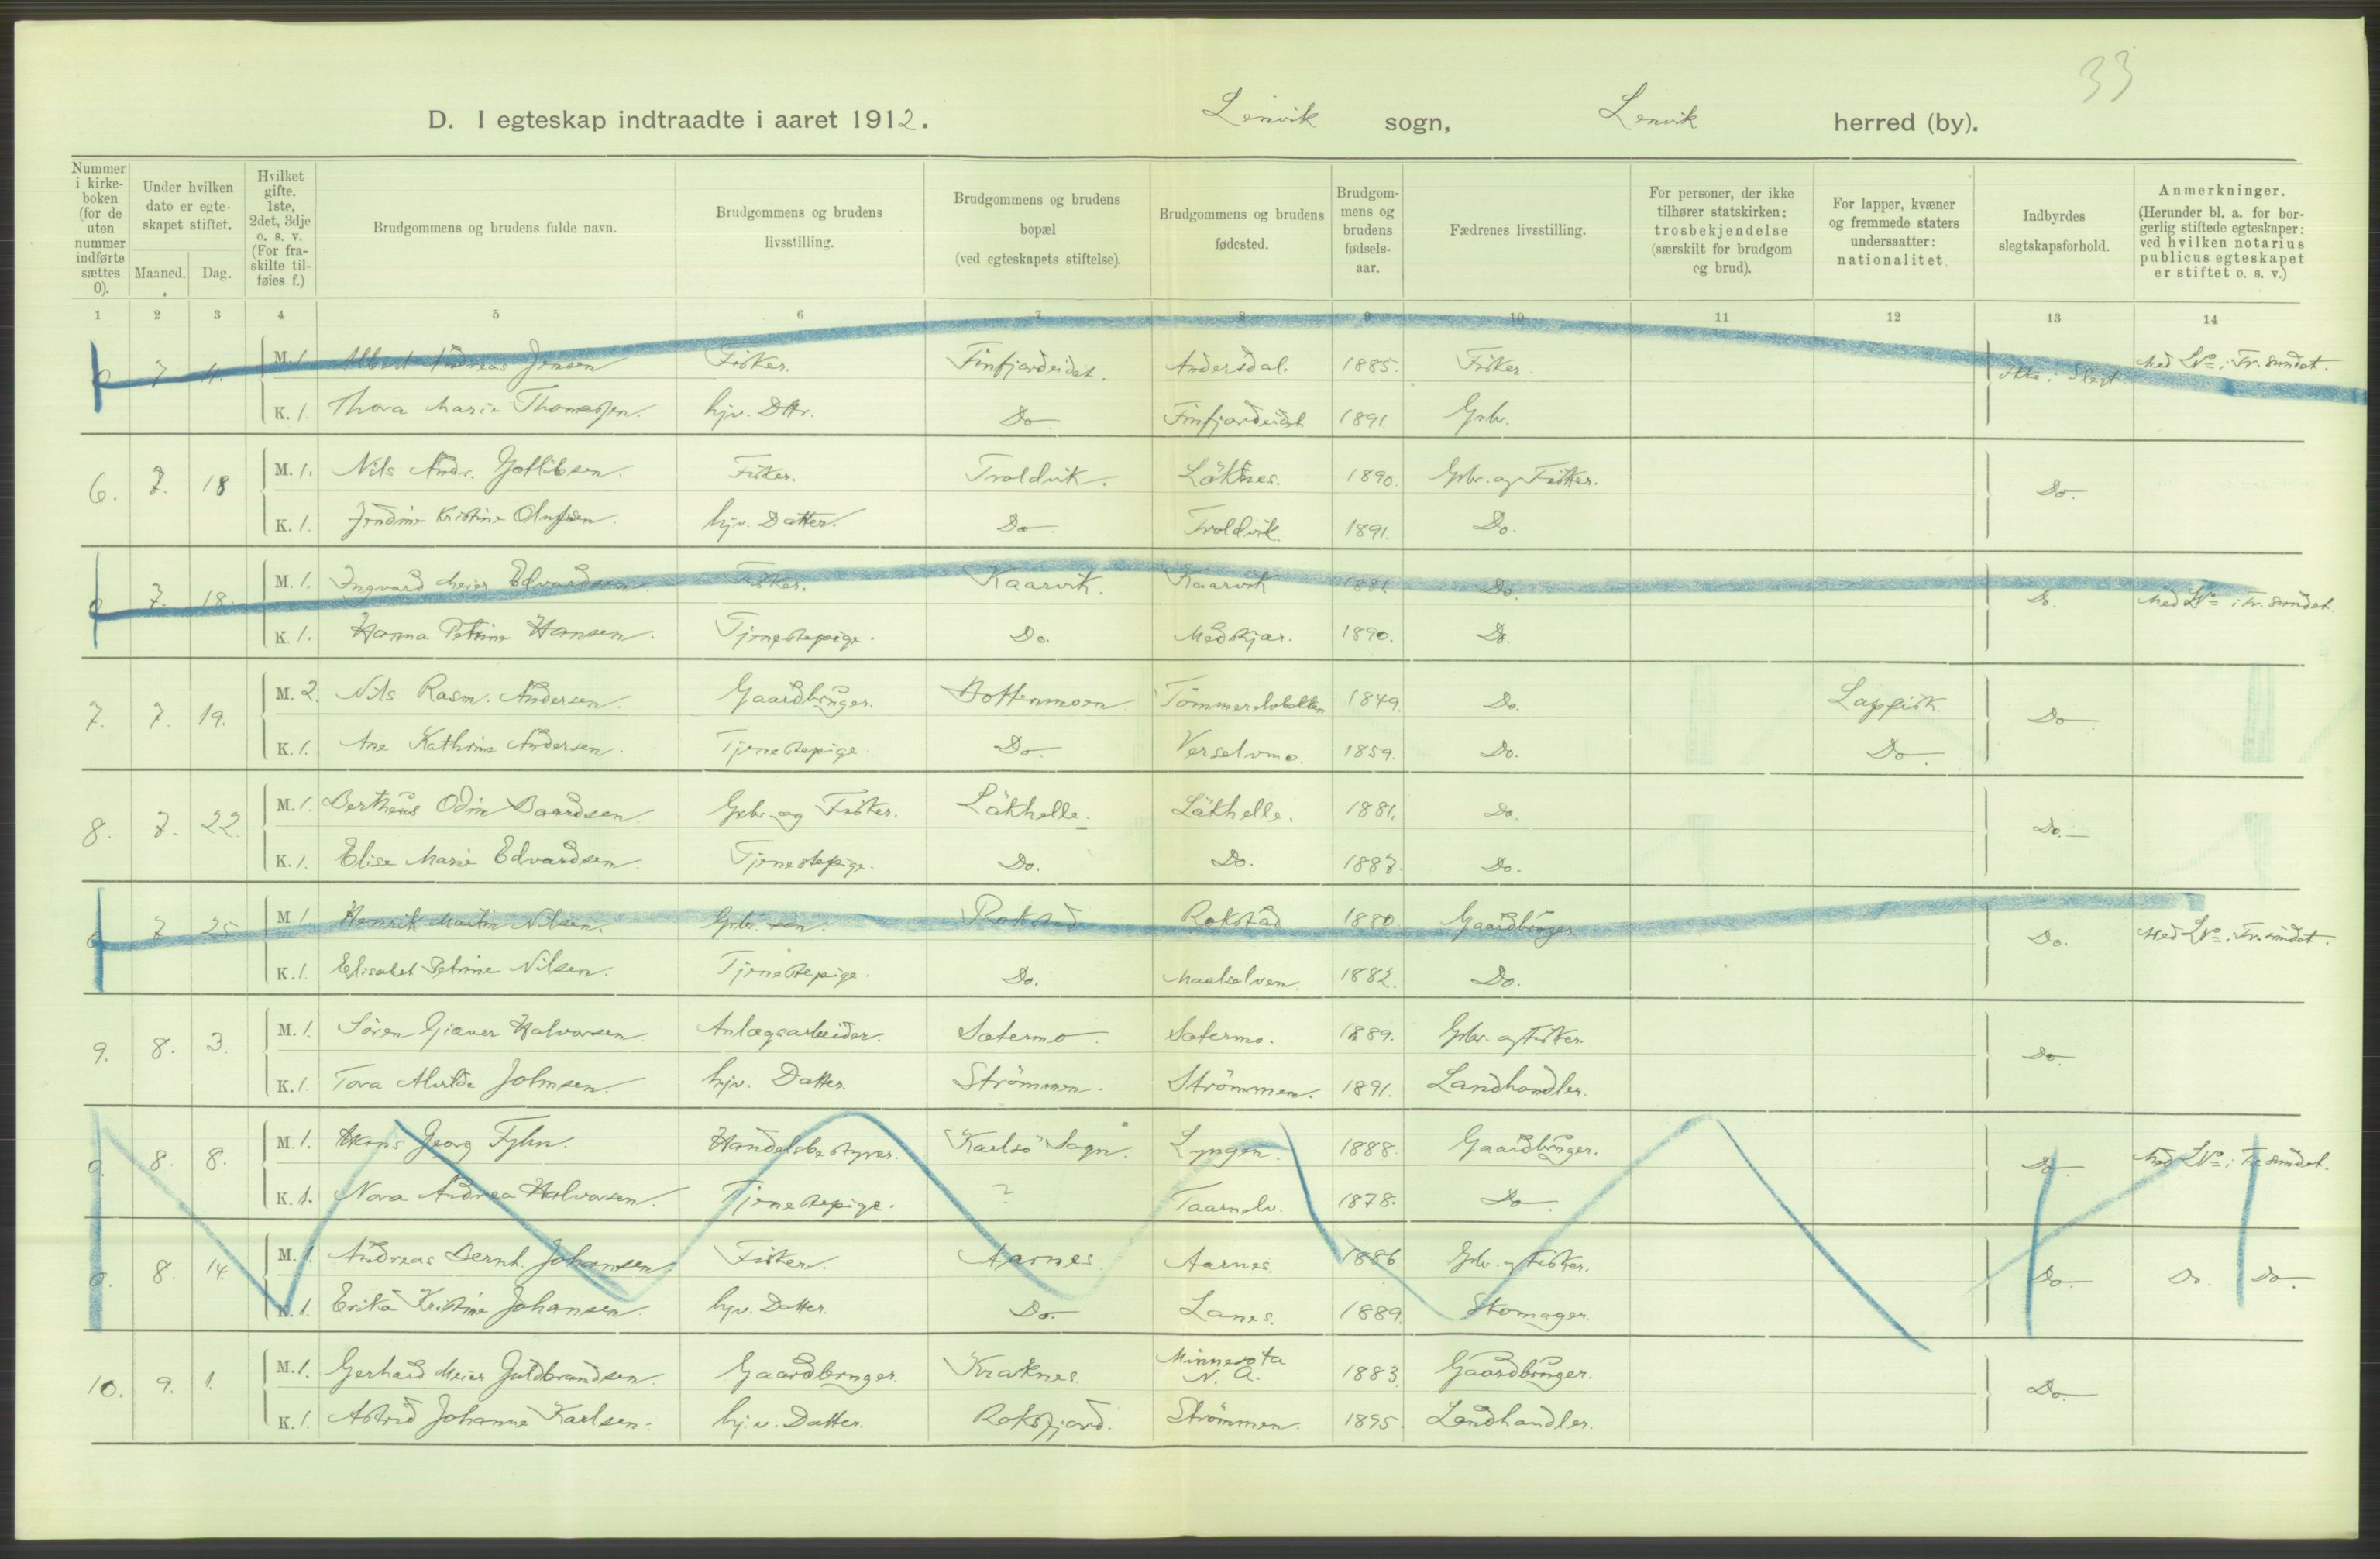 33
D. I egteskap indtraadte i aaret 1912. Lenvik sogn, Lenvik herred (by).
Nummer i kirke-boken (for de uten nummer indførte sættes 0).
Under hvilken dato er egte-skapet stiftet.
Maaned. Dag.
Hvilket gifte. 1ste, 2det, 3dje o. s. v. (For fra-skilte til-føies f.)
Brudgommens og brudens fulde navn.
Brudgommens og brudens livsstilling.
Brudgommens og brudens bopæl (ved egteskapets stiftelse).
Brudgommens og brudens fødested.
Brudgom-mens og brudens fødsels-aar.
Fædrenes livsstilling.
For personer, der ikke tilhører statskirken: trosbekjendelse (særskilt for brudgom og brud).
For lapper, kvæner og fremmede staters undersaatter: nationalitet.
Indbyrdes slegtskapsforhold.
Anmerkninger. (Herunder bl. a. for bor-gerlig stiftede egteskaper: ved hvilken notarius publicus egteskapet er stiftet o. s. v.)
1 2 3 4 5 6 7 8 9 10 11 12 13 14
0 7 4. M. 1. Albert Andreas Jensen Fisker. Finfjordeidet. Andersdal. 1885. Fisker. Ikke i Slegt. Med No i Tr. sundet.
K. 1. Thora Marie Thomassen. hjv. Dtr. Do Finfjordeidet 1891. Grbr.
6. 7. 18 M. 1. Nils Andr. Gotlibsen. Fisker. Troldvik. Läknes. 1890. Grbr. og Fisker. Do.
K. 1. Jendine Kristine Olufsen. hjv. Datter. Do Troldvik. 1891. Do.
0 7. 18. M. 1. Ingvard Meier Edvardsen. Fisker. Kaarvik. Kaarvik 1881. Do. Do. Med No i Tr. sundet.
K. 1. Hanna Petrine Hansen. Tjenestepige. Do. Medskjær. 1890. Do.
7. 7. 19. M. 2. Nils Rasm. Andersen. Gaardbruger. Bottenmoen Tömmerelv 1849. Do. Lappisk. Do
K. 1. Ane Kathrine Andersen. Tjenestepige. Do Verselvmo. 1859. Do. Do.
8. 7. 22. M. 1. Bertheus Odin Baardsen. Grbr. og Fisker. Läkhelle. Läkhelle. 1881. Do. Do.
K. 1. Elise Marie Edvardsen. Tjenestepige. Do. Do. 1887. Do.
0 7 25 M. 1. Henrik Martin Nilsen. Grbr. søn. Rokstad Rokstad 1880 Gaardbruger Do. Med No i Tr. sundet.
K. 1. Elisabet Petrine Nilsen. Tjenestepige. Do. Maalselven. 1882. Do.
9. 8. 3. M. 1. Sören Giæver Halvorsen. Anlægsarbeider. Sætermo. Sætermo. 1889. Grbr. og Fisker. Do.
K. 1. Tora Alvilde Johnsen. hjv. Datter. Strömmen. Strömmen. 1891. Landhandler.
0. 8. 8. M. 1. Hans Georg Fyhn. Handelsbestyrer. Karlsö Sogn. Lyngen. 1888. Gaardbruger. Do Med No i Tr. sundet.
K. 1. Nora Andrea Halvorsen. Tjenestepige. ? Taarnelv. 1878. Do.
0. 8. 14. M. 1. Andreas Bernh. Johansen Fisker. Aarnes. Aarnes. 1886 Grbr. og Fisker. Do. Do. Do.
K. 1. Erika Kristine Johansen. hjv. Datter. Do. Lanes. 1889. Skomager.
10. 9. 1. M. 1. Gerhard Meier Guldbrandsen. Gaardbruger. Kraknes. Minnesota N. A. 1883. Gaardbruger. Do.
K. 1. Astrid Johanne Karlsen. hj. v. Datter. Roksfjord. Strömmen. 1895. Landhandler.